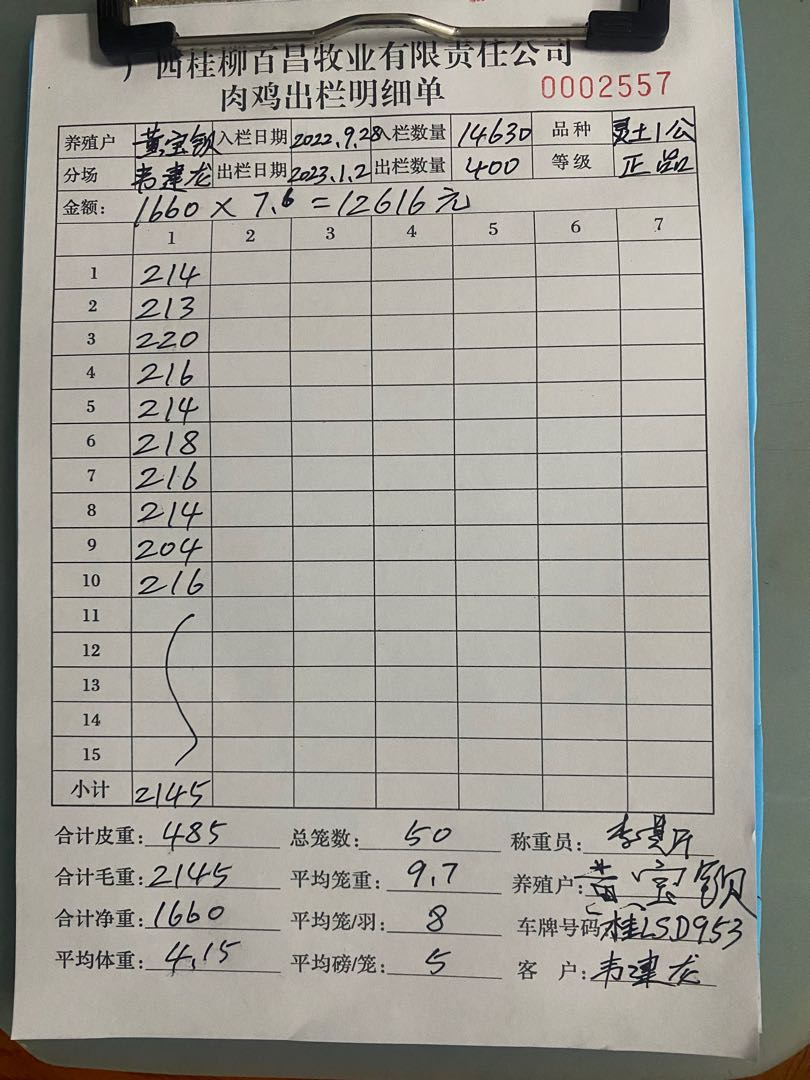 广西桂柳百昌牧业有限责任公司
肉鸡出栏明细单 0002557
养殖户 黄宝钡 入栏日期 2022.9.28 入栏数量 14630 品种 灵土1公
分场 韦建龙 出栏日期 2023.1.2 出栏数量 400 等级 正品
金额: 1660 × 7.6 = 12616元
1 2 3 4 5 6 7
1 214
2 213
3 220
4 216
5 214
6 218
7 216
8 214
9 204
10 216
11
12
13
14
15
小计 2145
合计皮重: 485 总笼数: 50 称重员: 李
合计毛重: 2145 平均笼重: 9.7 养殖户: 黄宝钡
合计净重: 1660 平均笼/羽: 8 车牌号码 桂LSD953
平均体重: 4.15 平均磅/笼: 5 客户: 韦建龙